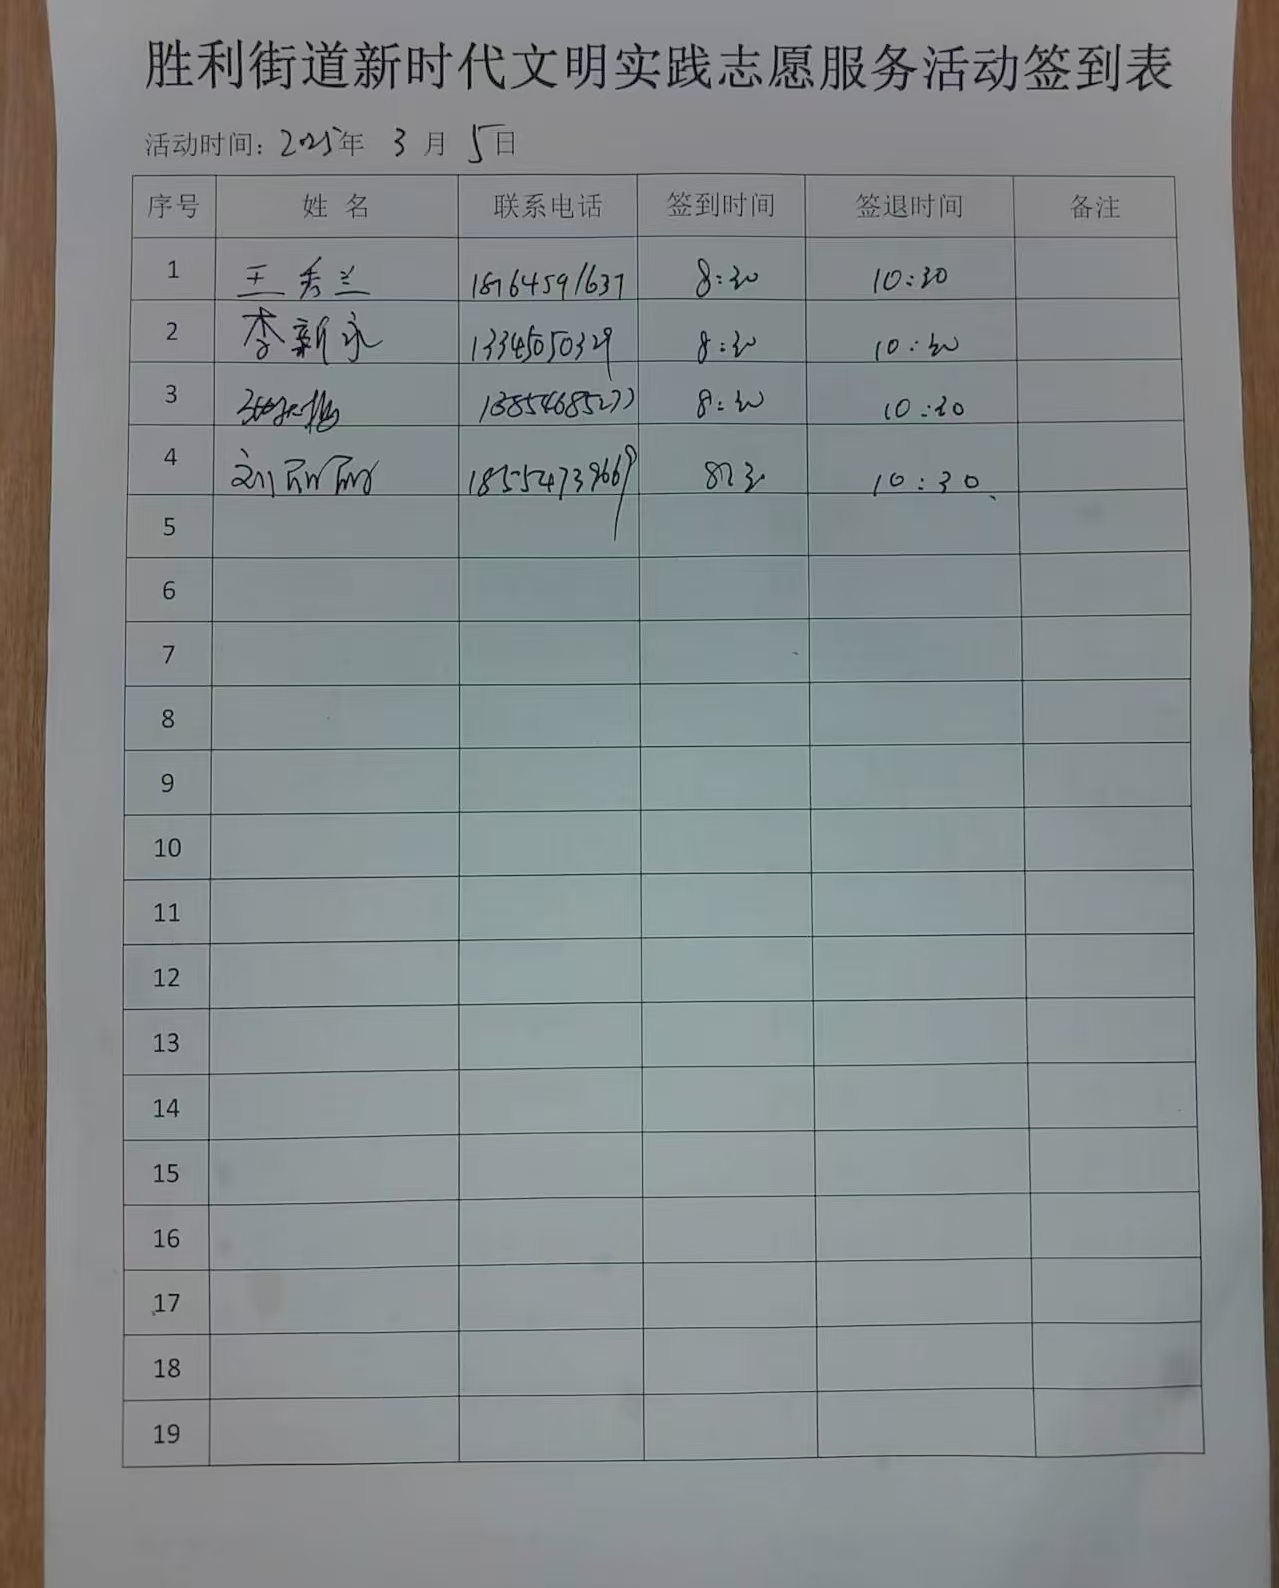 胜利街道新时代文明实践志愿服务活动签到表
活动时间：2025年 3月 5日
序号 姓名 联系电话 签到时间 签退时间 备注
1 王秀兰 18764591637 8:30 10:30
2 李新永 13345050329 8:30 10:30
3 8:30 10:30
4 刘丽丽 8:30 10:30
5
6
7
8
9
10
11
12
13
14
15
16
17
18
19